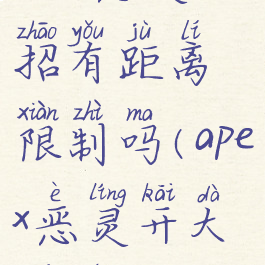 zhāo yǒu jù lí
招有距离
xiàn zhì ma
限制吗(ape
è líng kāi dà
x恶灵开大